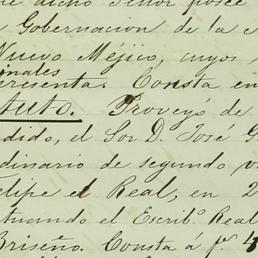 de dicho Señor posee
Gobernacion de la
Nuevo Mejico, cuyos
onales
presenta. Consta en
tuto. Proveyó de
dido, el Sor D. José G
dinario de segundo v
elipe el Real, en 2
tuando el Escribº Real
Briseño. Consta á fs. 4